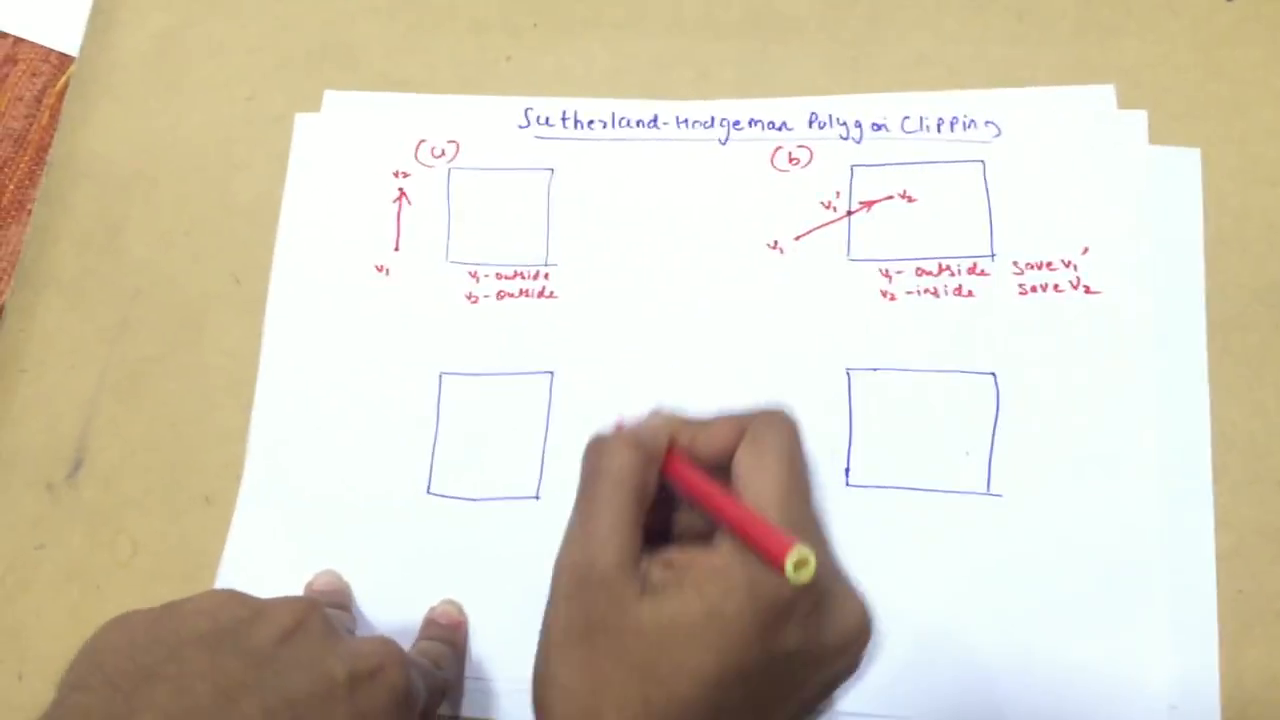 Sutherland-Hodgeman Polygon Clipping
(a)
v2
v1
v1-outside
v2-outside
(b)
v1'
v2
v1
v1- outside save v1'
v2 -inside save v2